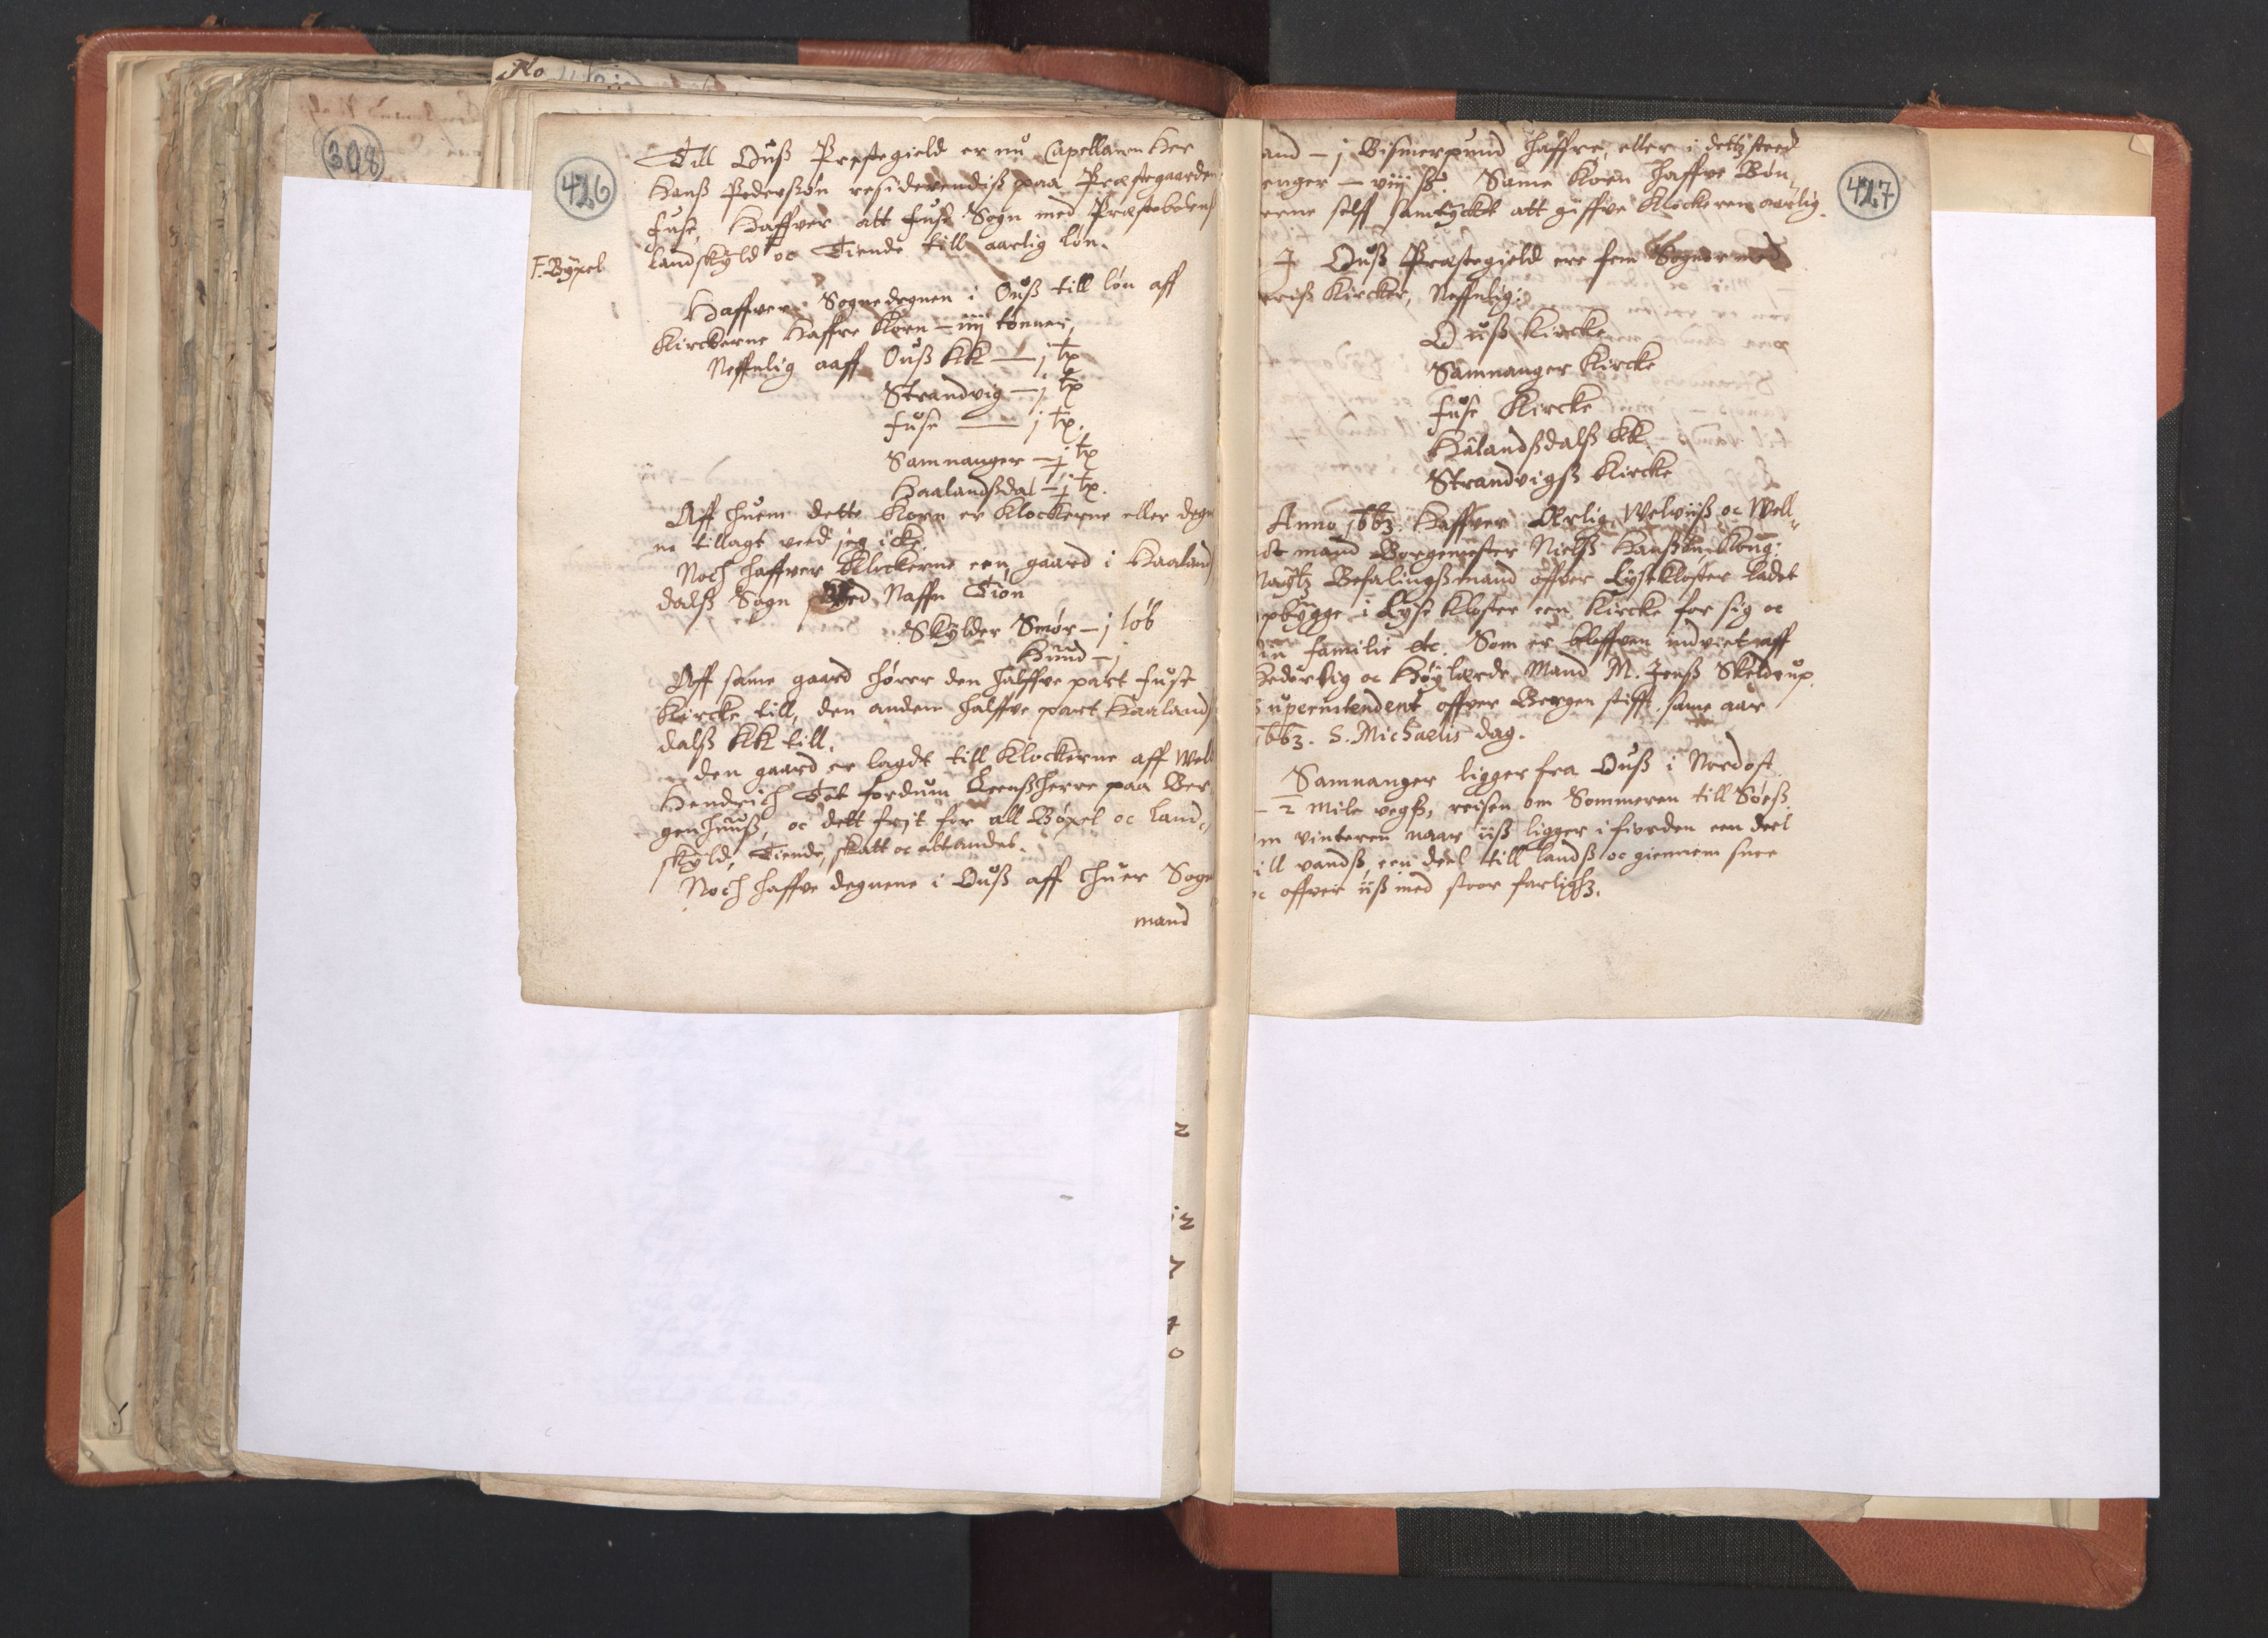 308
426
Till Ouß Prestegield er nu Capellanen Her
Hanß Pederßøn residerendiß paa Præstegaarden
Fuse, Haffver att Fuse Sogn med Præstebolens
landskyld oc Tiende till aarlig løn.
F. Byxel
Haffver Sognedegnen i Ouß till løn aff
Kirckerne Haffre Korn – iiij tønner,
Neffnlig aaff Ouß KK — j tø
Strandvig — j tø
Fuse — j tø.
Samnanger — j tø
Haalandßdal — j tø.
Aff huem dette Korn er Klockerne eller degne
ne tillagt veed jeg icke.
Noch haffver Klockerne een gaard i Haaland
dalß Sogn Ved Naffn Tion
Skylder Smør – j løb
Hund – j
Aff same gaard hører den halffve part Fuse
Kircke till, den anden halffve part Haaland
dalß KK till.
den gaard er lagdt till Klockerne aff Well
Hendrich Tot fordum Leenßherre paa Ber
genhuuß, oc dett frjt for all Bøxel oc land-
skyld, Tiende, skatt oc alt andet.
Noch haffve degnene i Ouß aff huer Sogn
mand
427
and – j Bismerpund haffre, eller i dettz steed
enger – viij ß. Same Korn haffve Bøn-
erne self samtyckt att giffve Klockeren aarlig.
I Ouß Præstegield ere fem Sogner med
eriß Kircker, Neffnlig:
Ouß Kircke
Samnanger Kircke
Fuse Kircke
Hålandßdalß KK
Strandvigß Kircke
Anno 1663. Haffver Ærlig, Welviiß oc Well-
dt mand Borgemester Nielß Hanßøn Kong:
Maytz Befalingßmand offver Lyse Kloster ladet
pbygge i Lyse Kloster een Kircke for sig oc
in familie etc. Som er bleffven indviet aff
Hederlig oc Høylærde Mand M. Jenß Skeldrup.
Superintendent offver Bergen stifft. same aar
1663. S. Michaelis dag.
Samnanger ligger fra Ouß i Nordost.
– 2 Mile vegß, reisen om Sommeren till Søeß.
m vinteren naar iiß ligger i fiorden een deel
ill vandß, een deel till landß oc giennem snee
oc offver iiß med stoor farlighz.